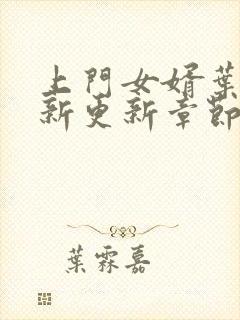 上門女婿葉
新更新章節
葉霖嘉